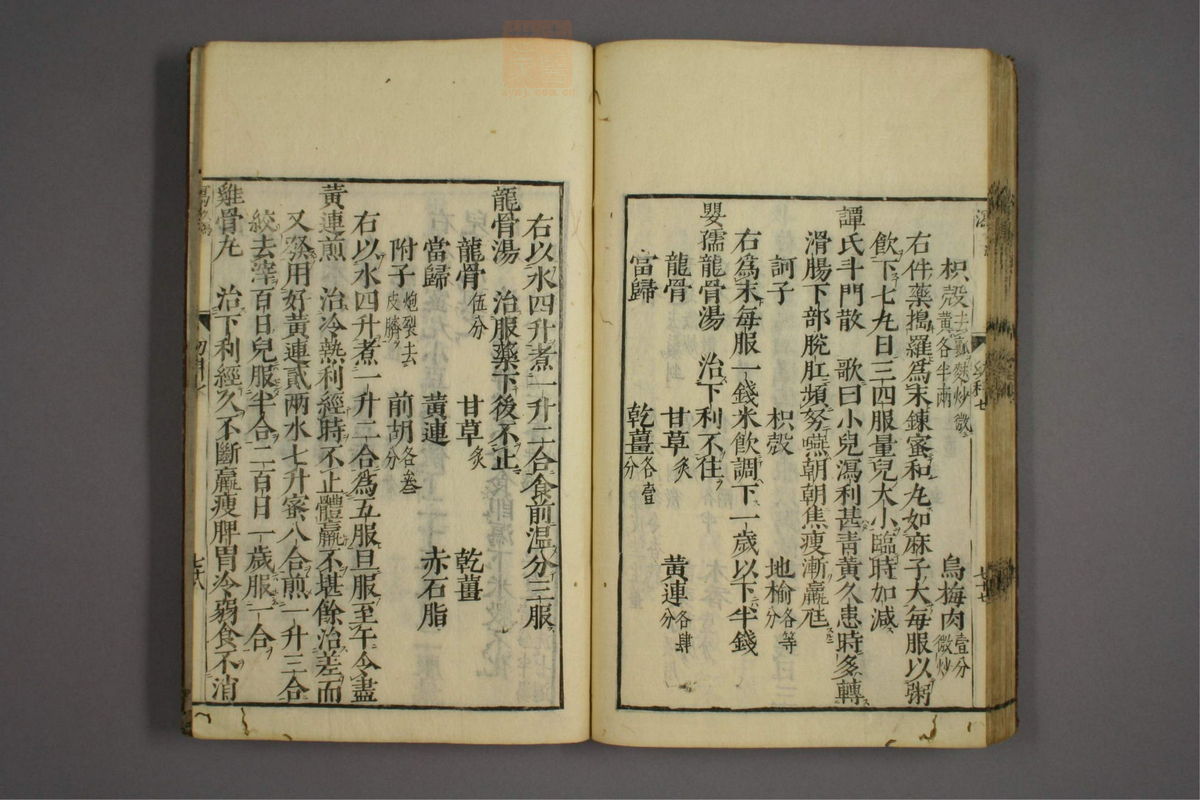 枳殼去瓤麩炒微黃各半兩 烏梅肉壹分微炒
右件藥搗羅爲末鍊蜜和丸如麻子大每服以粥
飲下七九日三四服量兒大小臨時加減
譚氏斗門散 歌曰小兒瀉利甚青黃久患時多轉
滑腸下部脫肛頻努嚥朝朝焦瘦漸羸尫
訶子 枳殼 地榆各等分
右爲末每服一錢米飲調下一歲以下半錢
嬰孺龍骨湯 治下利不住
龍骨 甘草炙 黃連各肆分
當歸 乾薑各壹分
七十七
右以水四升煮一升二合食前温分三服
龍骨湯 治服藥下後不止
龍骨伍分 甘草炙 乾薑
當歸 黃連 赤石脂
附子炮裂去皮臍 前胡各叁分
右以水四升煮一升二合爲五服旦服至午令盡
黃連煎 治冷熱利經時不止體羸不堪餘治差而
又發用好黃連貳兩水七升蜜八合煎一升三合
絞去滓百日兒服半合二百日一歲服一合
雞骨丸 治下利經久不斷羸瘦脾胃冷弱食不消
七十八